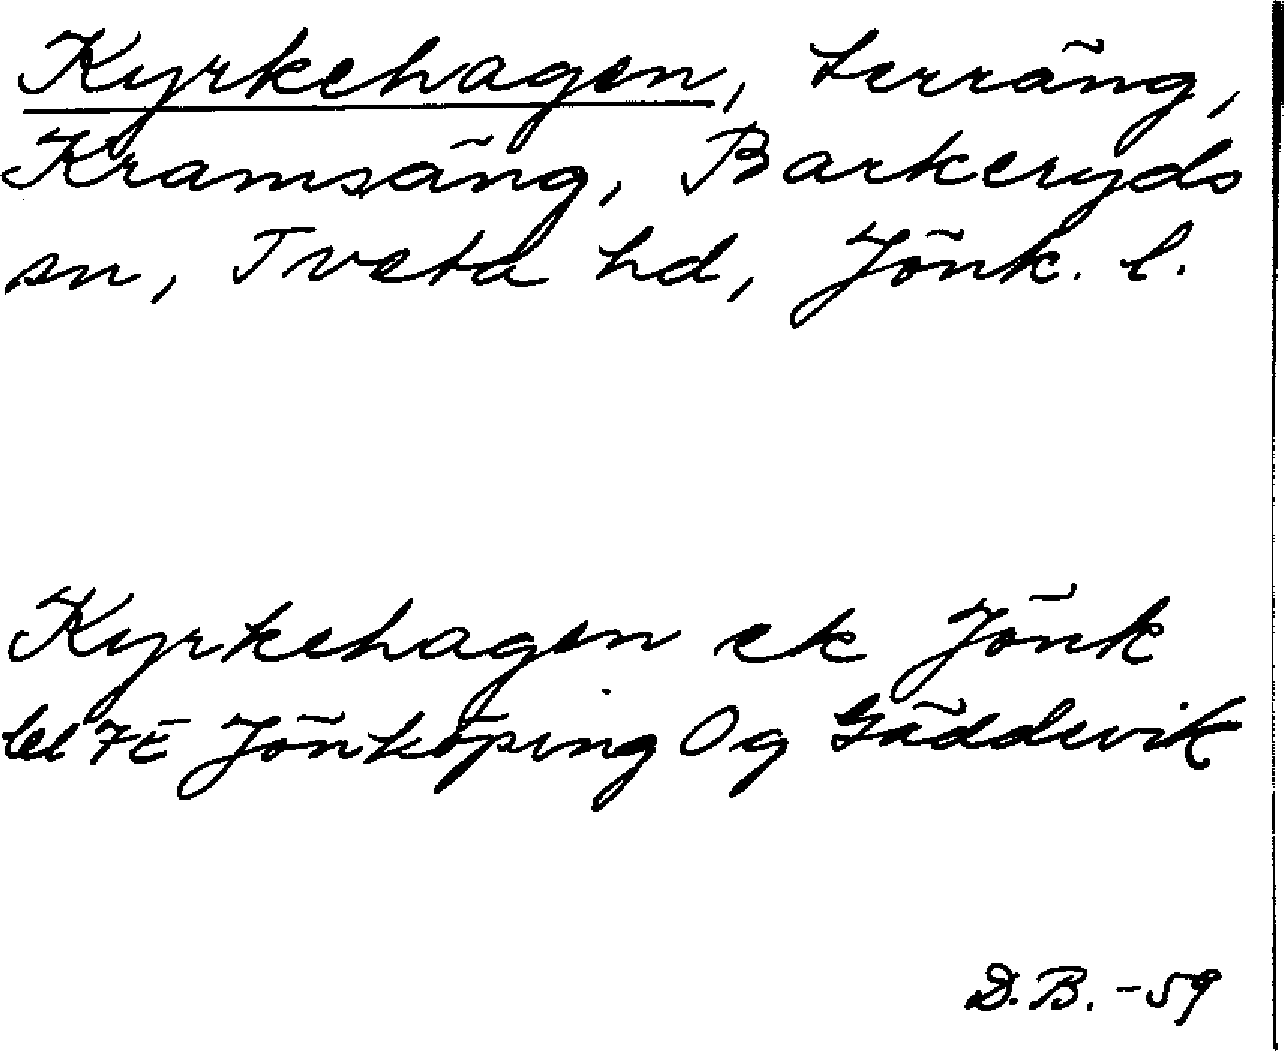 Kyrkehagen, terräng,
Kramsäng, Barkeryds
sn, Tveta hd, Jönk. l.
Kyrkehagen ek Jönk
bl 7E Jönköping Og Gäddevik
D.B. -59